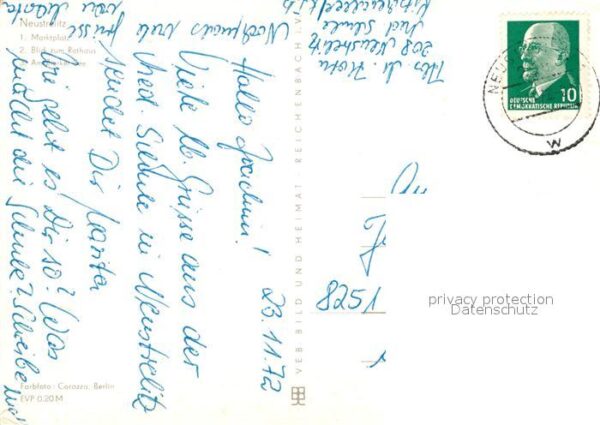 Neustrelitz
1. Marktplatz
2. Blick zum Rathaus
23.11.72
Hallo Joachim!
Viele lb. Grüsse aus der
Med. Schule in Neustrelitz
sendet Dir Marita
Wie geht es Dir so? Was
macht die Schule? Schreibe mal
Nochmals viele
Grüsse
Med. Schule
208 Neustrelitz
8251
Farbfoto: Corazza, Berlin
EVP 0,20 M
VEB BILD UND HEIMAT · REICHENBACH I. V.
10
DEUTSCHE
DEMOKRATISCHE REPUBLIK
W
privacy protection
Datenschutz